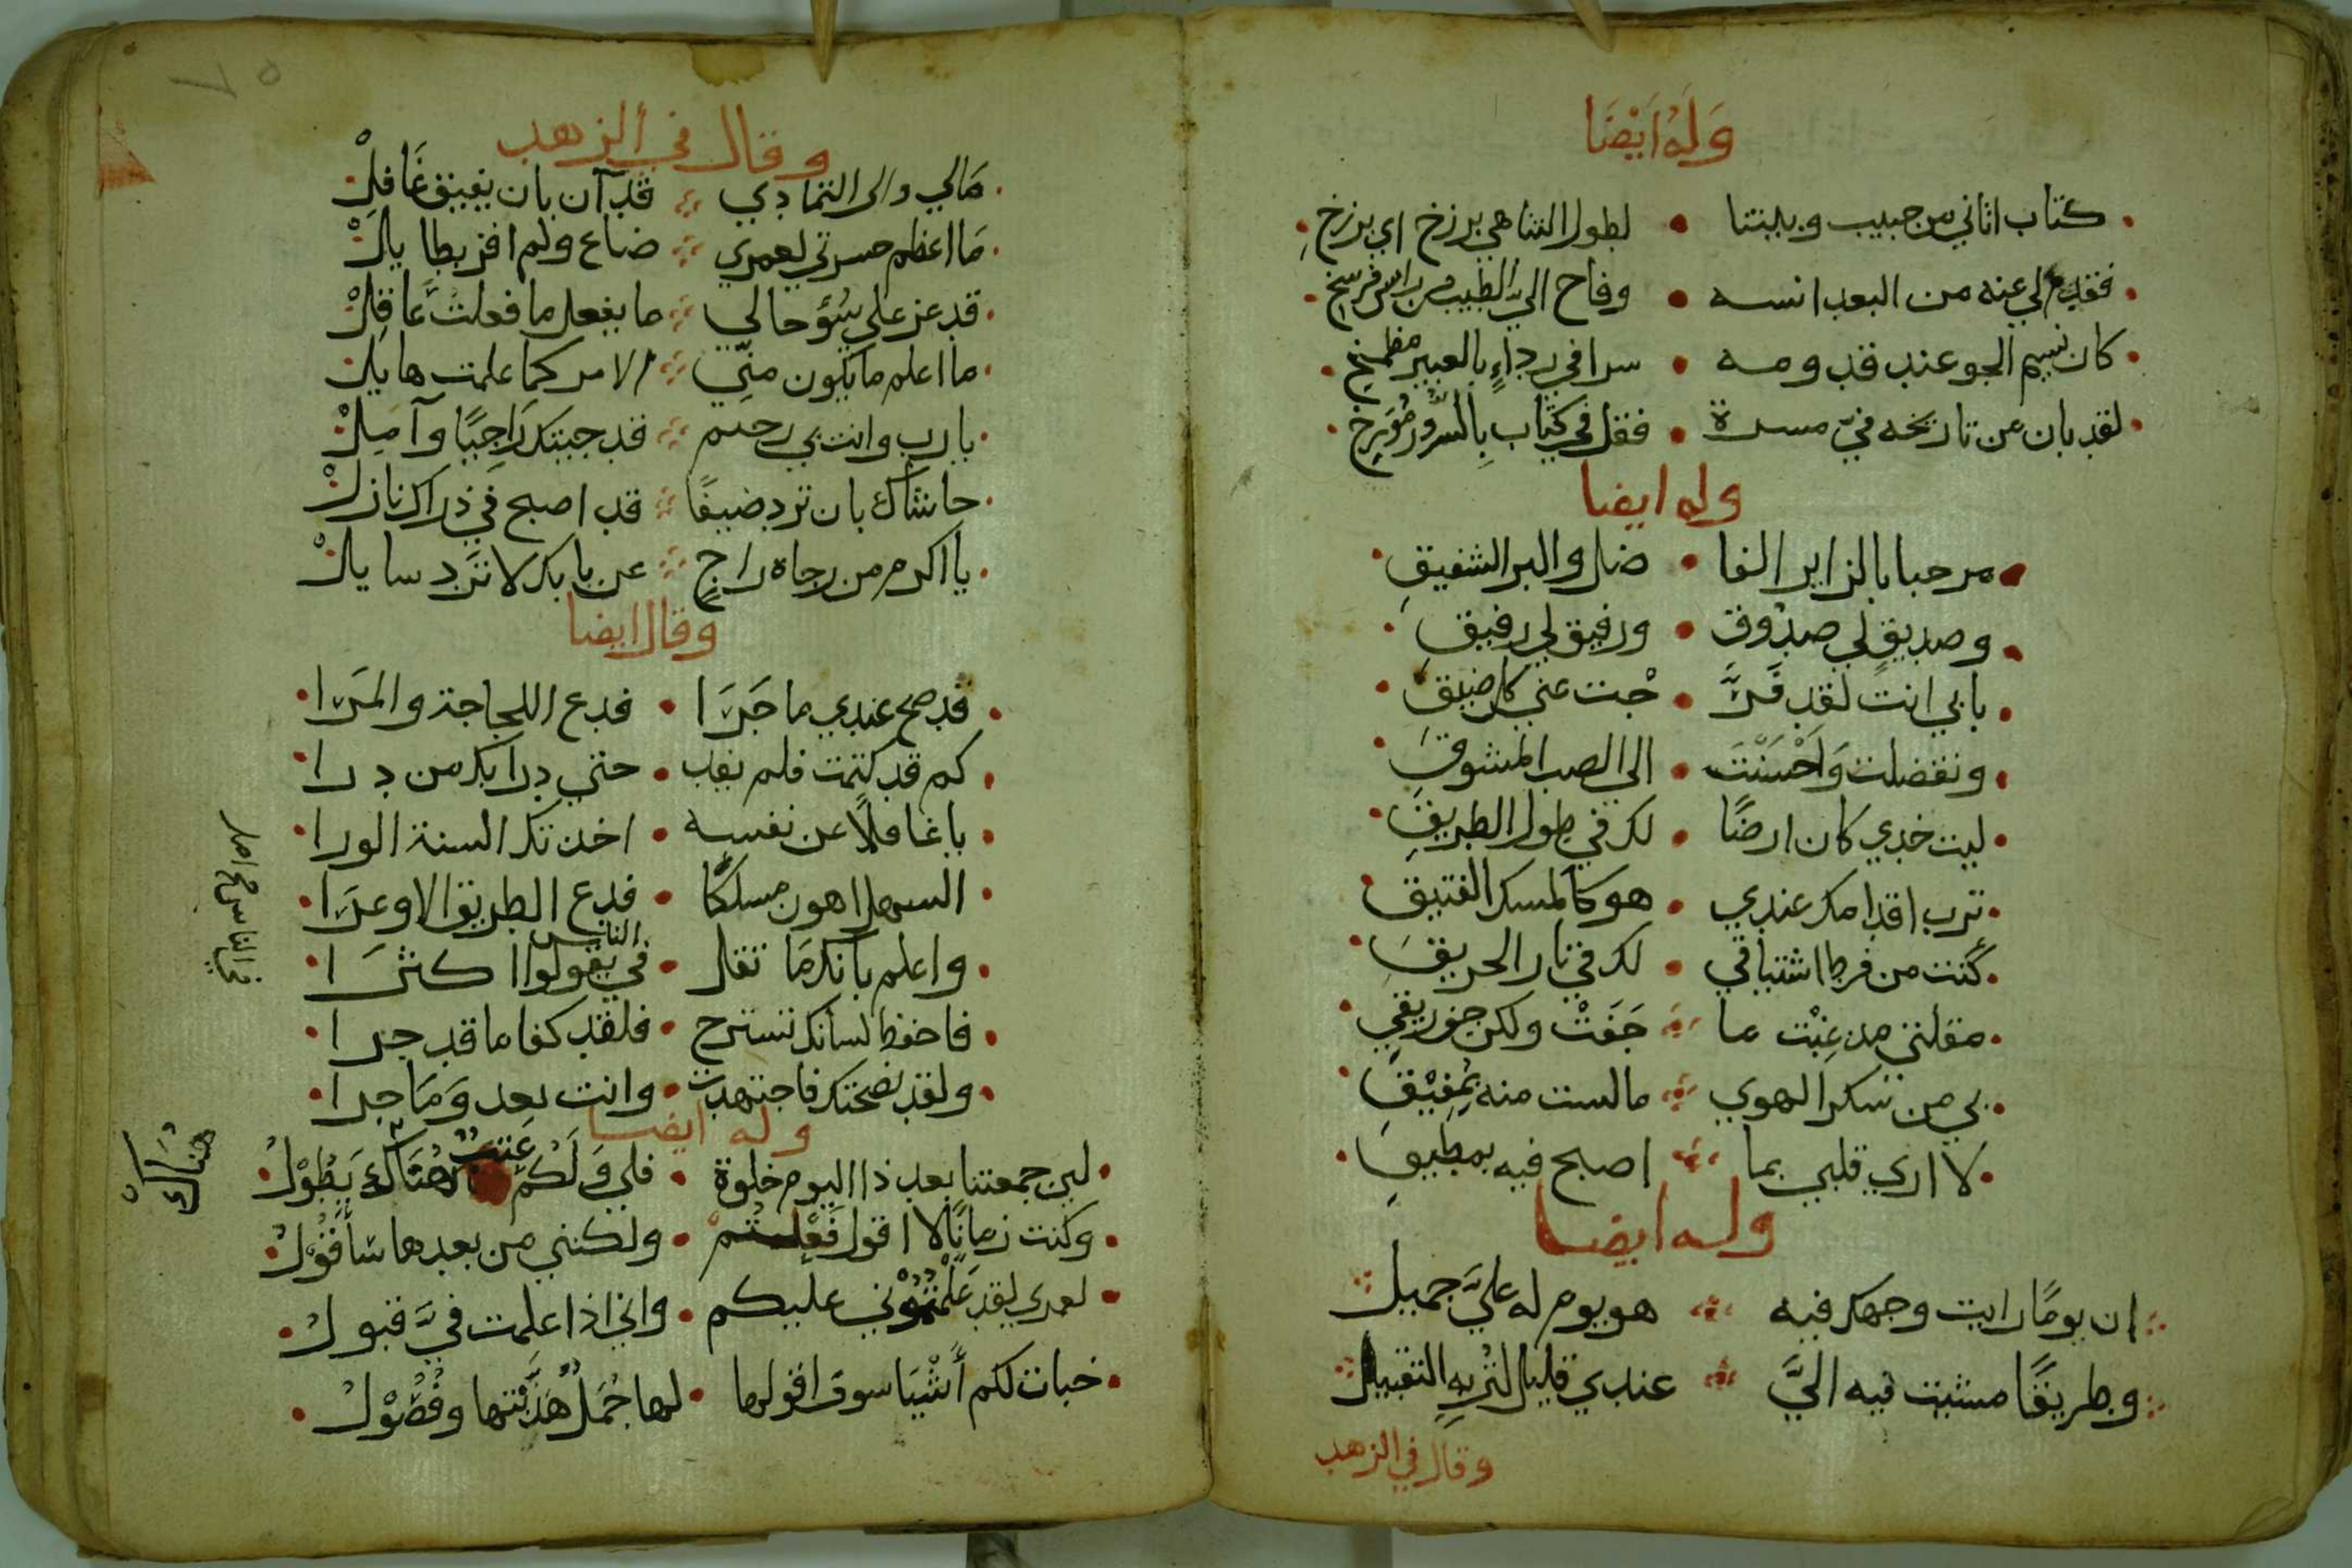 وَلَهُ اَيْضَا
كتاب اتاني من حبيب وبيننا • لطول التناهي برزخ اي برزخ
فقدم لي عنه من البعد انسه • وفاح الي الطيب من راس فرسخ
كان نسيم الجو عند قدومه • سرا في رداءٍ بالعبير مضمخ
لقد بان من تاريخه فيّ مسرة • فقل في كتاب بالسرور مُؤرخ
وله ايضا
مرحبا بالزاير الفا • ضل والبر الشفيق
وصديقٍ لي صدُوق • ورفيق لي رفيق
بابي انت لقد فرَّ • جْت عني كل ضيق
وتفضلت وَاَحْسَنْتَ • الى الصب المشوق
ليت خدي كان ارضًا • لك في طول الطريق
ترب اقدامك عندي • هو كالمسك الفتيق
كنت من فرط اشتياقي • لك في نار الحريق
مقلتي مد غِبْت ما • جَفَتْ ولكن جف ريقي
بي من سكر الهوي • ما لست منه بمُفِيْقِ
لا اري قلبي بما • اصبح فيه بمطيق
وله ايضا
ان يومًا رايت وجهك فيه • هو يوم له عليَّ جميل
وطريقًا مشيت فيه اليَّ • عندي قليل لتُربهِ التقبيل
وقال في الزهد
وقال في الزهد
مَالي والى التمادي • قد آن بان يفيق غَافِلْ
مَا اعظم حسرتي لعمري • ضاع ولم افز بطايلْ
قد عز علي سُوٓ حالي • ما يفعل ما فعلت عَاقِلْ
ما اعلم ما يكون منّي • والامر كما علمت هايل
يارب وانت بي رحيم • قد جيتك رَاجِيًا وآمِلْ
حاشاك بان ترد ضيفًا • قد اصبح في ذراك نازلْ
يا اكرم من رجاه راجٍ • عن بابك لا تَرُد سايلْ
وقال ايضا
قد صح عندي ما جَرَا • فدع اللجاجة والمَرَا
كم قد كتمت فلم يفد • حتي درا بك من درا
يا غافلًا عن نفسه • اخذتك السنة الورا
السهل اهون مسلكًا • فدع الطريق الاوعَرَا
واعلم بانك مَا تقل • في الناس يقولوا اكثَرَا
في الناس صح اصل
فاحفظ لسانك تسترح • فلقد كفا ما قد جرا
ولقد نصحتك فاجتهدت • وانت بعد وَمَا جرا
وله ايضا
لين جمعتنا بعد ذا اليوم خلوة • فلي وَلَكُم عَتبٌ هُنَاك يَطُوْلُ
هُنَاكْ
وكنت زمانًا لا اقول فَعَلتُمْ • ولكنني من بعدها سَأَقُوْلُ
لعمري لقد عَلَّمْتُمُوْني عليكم • واني اذا علمت فيَّ قبولُ
خبات لكم أَشْيَا سوف اقولها • لها جُمَلٌ هَذَّبْتها وفُصُوْلُ